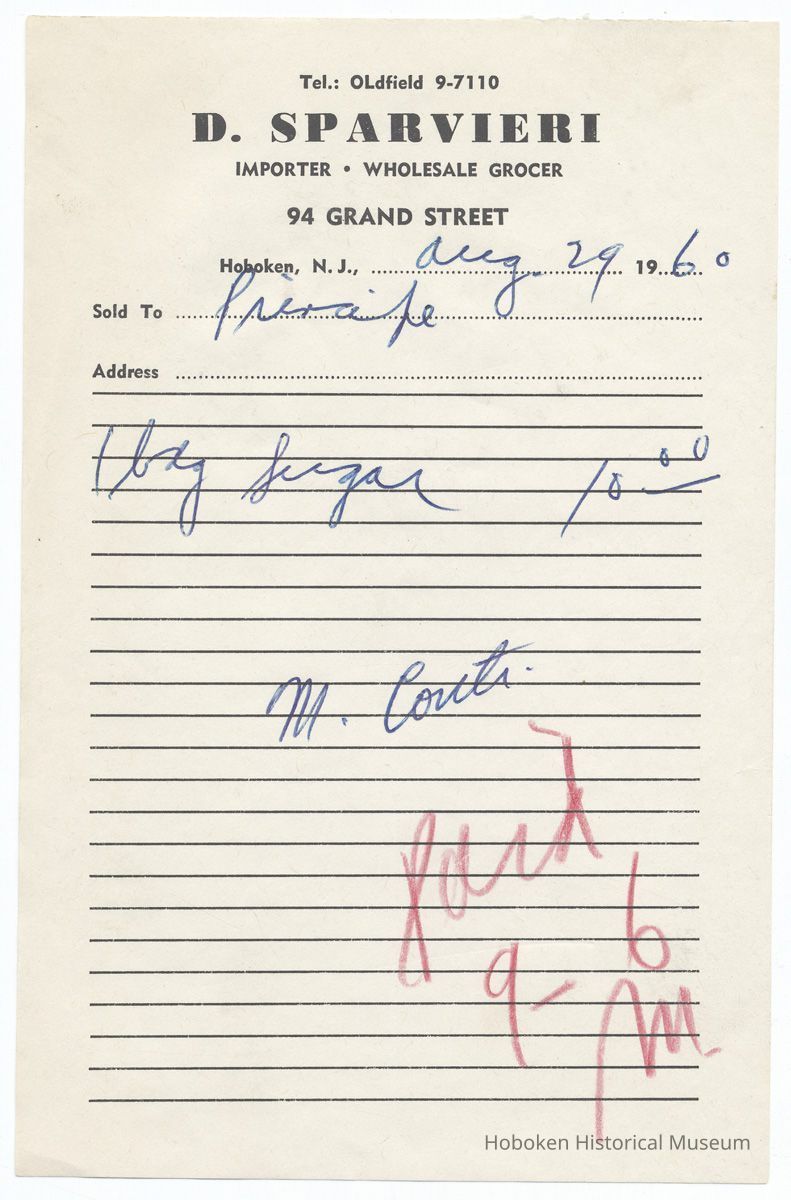 Tel.: OLdfield 9-7110
D. SPARVIERI
IMPORTER • WHOLESALE GROCER
94 GRAND STREET
Hoboken, N. J., Aug. 29 1960
Sold To Principe
Address
1 bag Sugar 10.00
M. Conti.
Paid
9-6
M.
Hoboken Historical Museum